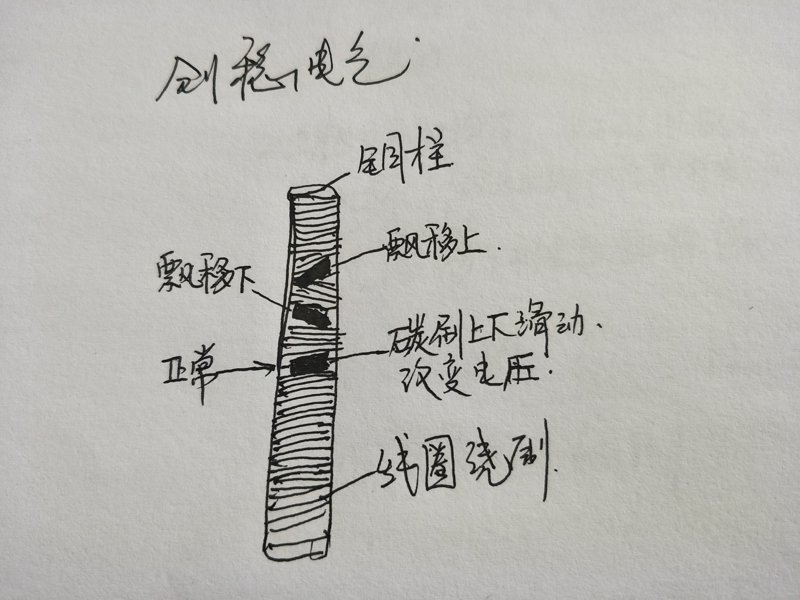 创稳电气
园柱
飘移上.
飘移下
正常
碳刷上下滑动.
改变电压.
线圈绕制.